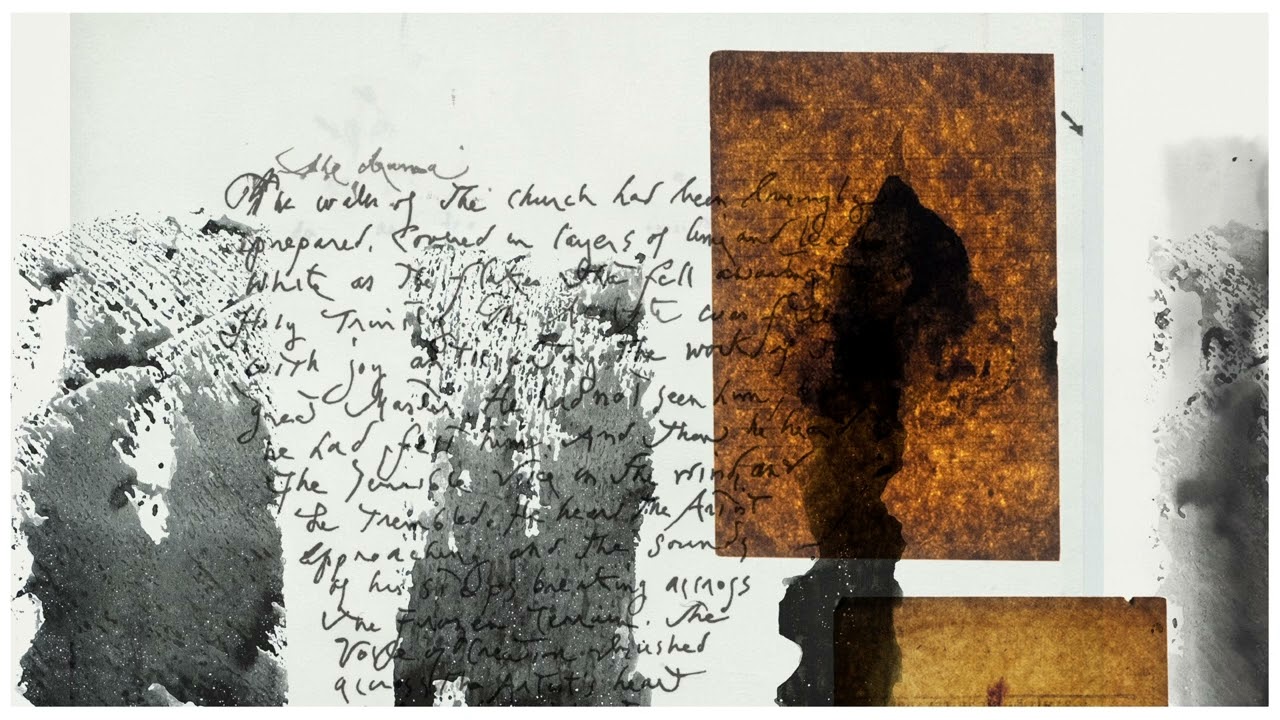 The drama
The walls of The church had been lovingly
prepared. Covered in layers of lime and lead
White as The flakes The fell
Holy Trinity. The
with joy anticipating The work of
great Master. He had not seen him,
he had felt him And Then he heard
The Voice on The wind and
he Trembled. He heard The Artist
Approaching and The sounds
of his steps breaking across
The Frozen Terrain. The
Voice of Creation
across The Artist's heart